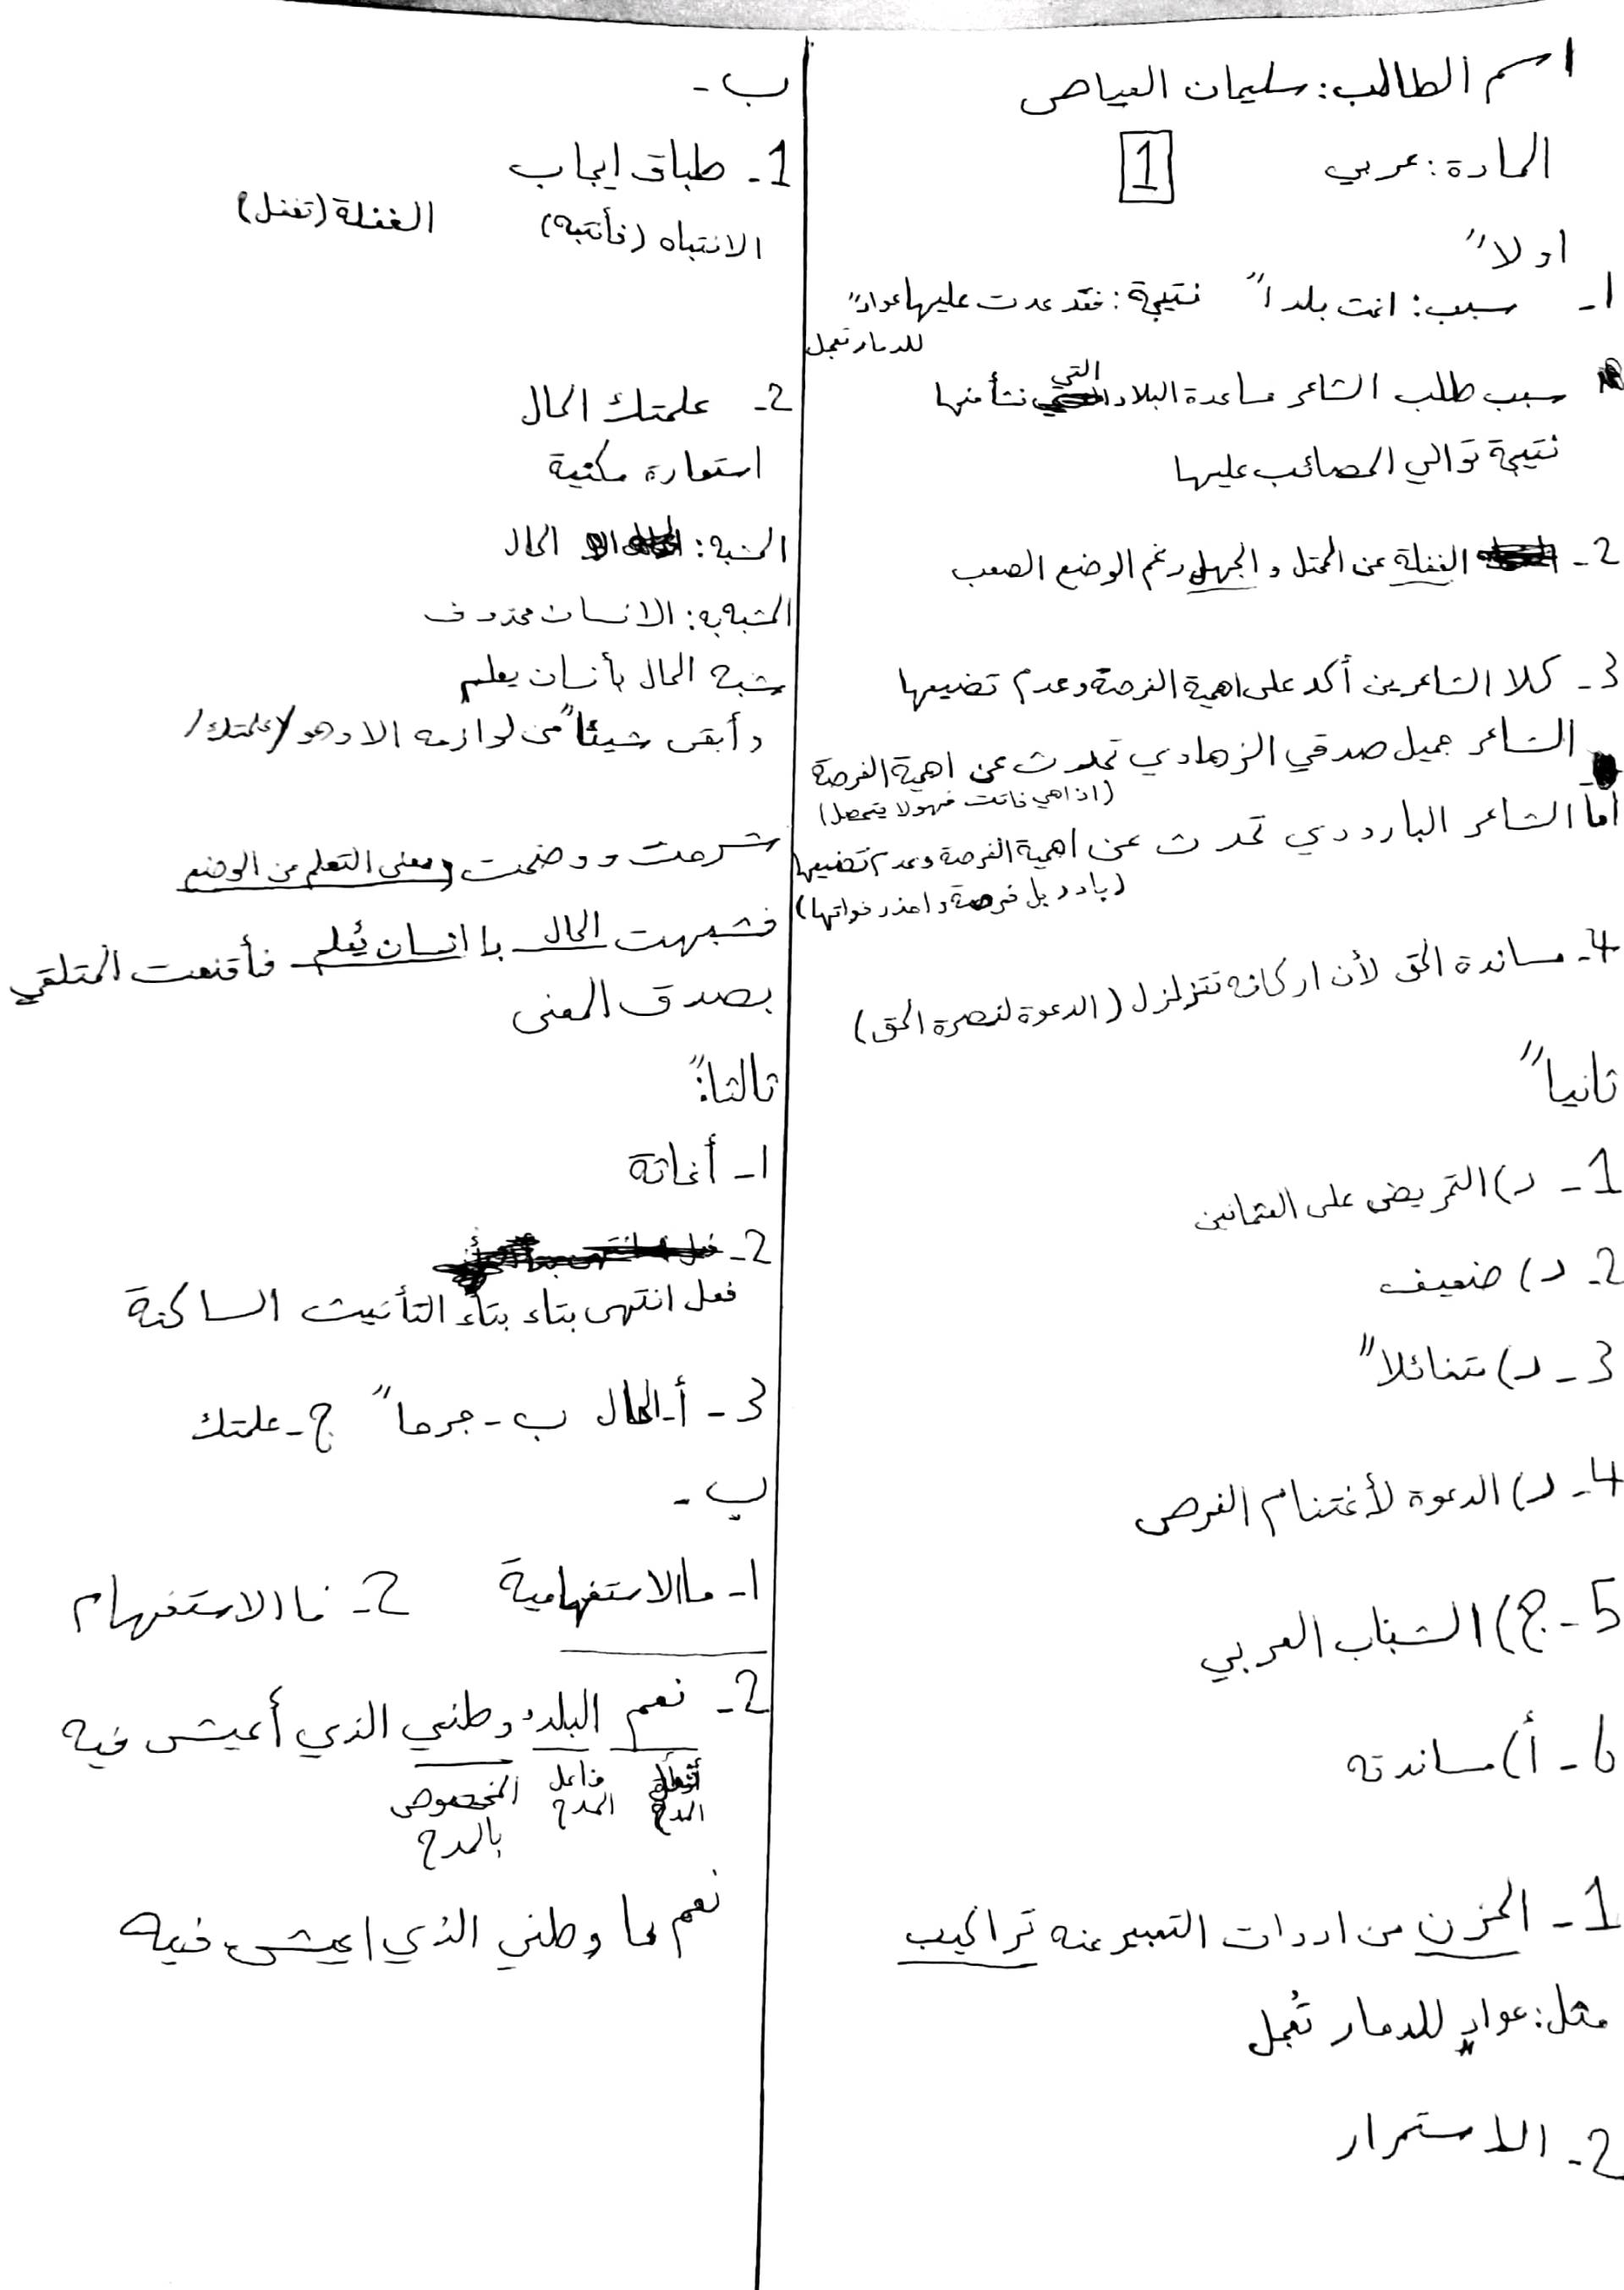 اسم الطالب: سليمان العياص
المادة: عربي
1
اولا"
1- سبب: اغث بلدا" نتيجة: فقد عدت عليها عواد"
للدمار تعجل
سبب طلب الشاعر مساعدة البلاد التي نشأ فيها
نتيجة توالي المصائب عليها
2- الغفلة عن المحتل و الجهل رغم الوضع الصعب
3- كلا الشاعرين أكد على اهمية الفرصة وعدم تضيعها
الشاعر جميل صدقي الزهاوي تحدث عن اهمية الفرصة
(اذا هي فاتت فهو لا يتحصل)
أما الشاعر البارودي تحدث عن اهمية الفرصة وعدم تضيعها
(بادر بل فرصة واحذر فواتها)
4- مساندة الحق لأن اركانه تتزلزل (الدعوة لنصرة الحق)
ثانيا"
1- د) التحريض على العثمانين
2- د) ضعيف
3- د) متفائلا"
4- د) الدعوة لأغتنام الفرص
5- ج) الشباب العربي
6- أ) مساندته
1- الحزن من ادوات التعبير عنه تراكيب
مثل: عوادٍ للدمار تُعجل
2- الاستمرار
ب-
1- طباق ايجاب
الانتباه (فأنتبه) الغفلة (تغفل)
2- علمتك الحال
استعارة مكنية
المشبه: الحال
المشبه به: الانسان محذوف
شبه الحال بأنسان يعلم
وأبقى شيئا" من لوازمه الا وهو /علمتك/
شرحت ووضحت معنى التعلم من الوضع
فشبهت الحال با انسان يُعلم فأقنعت المتلقي
بصدق المعنى
ثالثا":
1- أغاثة
2-
فعل انتهى بتاء بتاء التأنيث الساكنة
3- أ- الحال ب- جرحا" ج- علمتك
ب-
1- ما الاستفهامية 2- فا الاستفهام
2- نعم البلد وطني الذي أعيش فيه
المدح
فاعل
المدح
المخصوص
بالمدح
نعم ما وطني الذي اعيش فيه